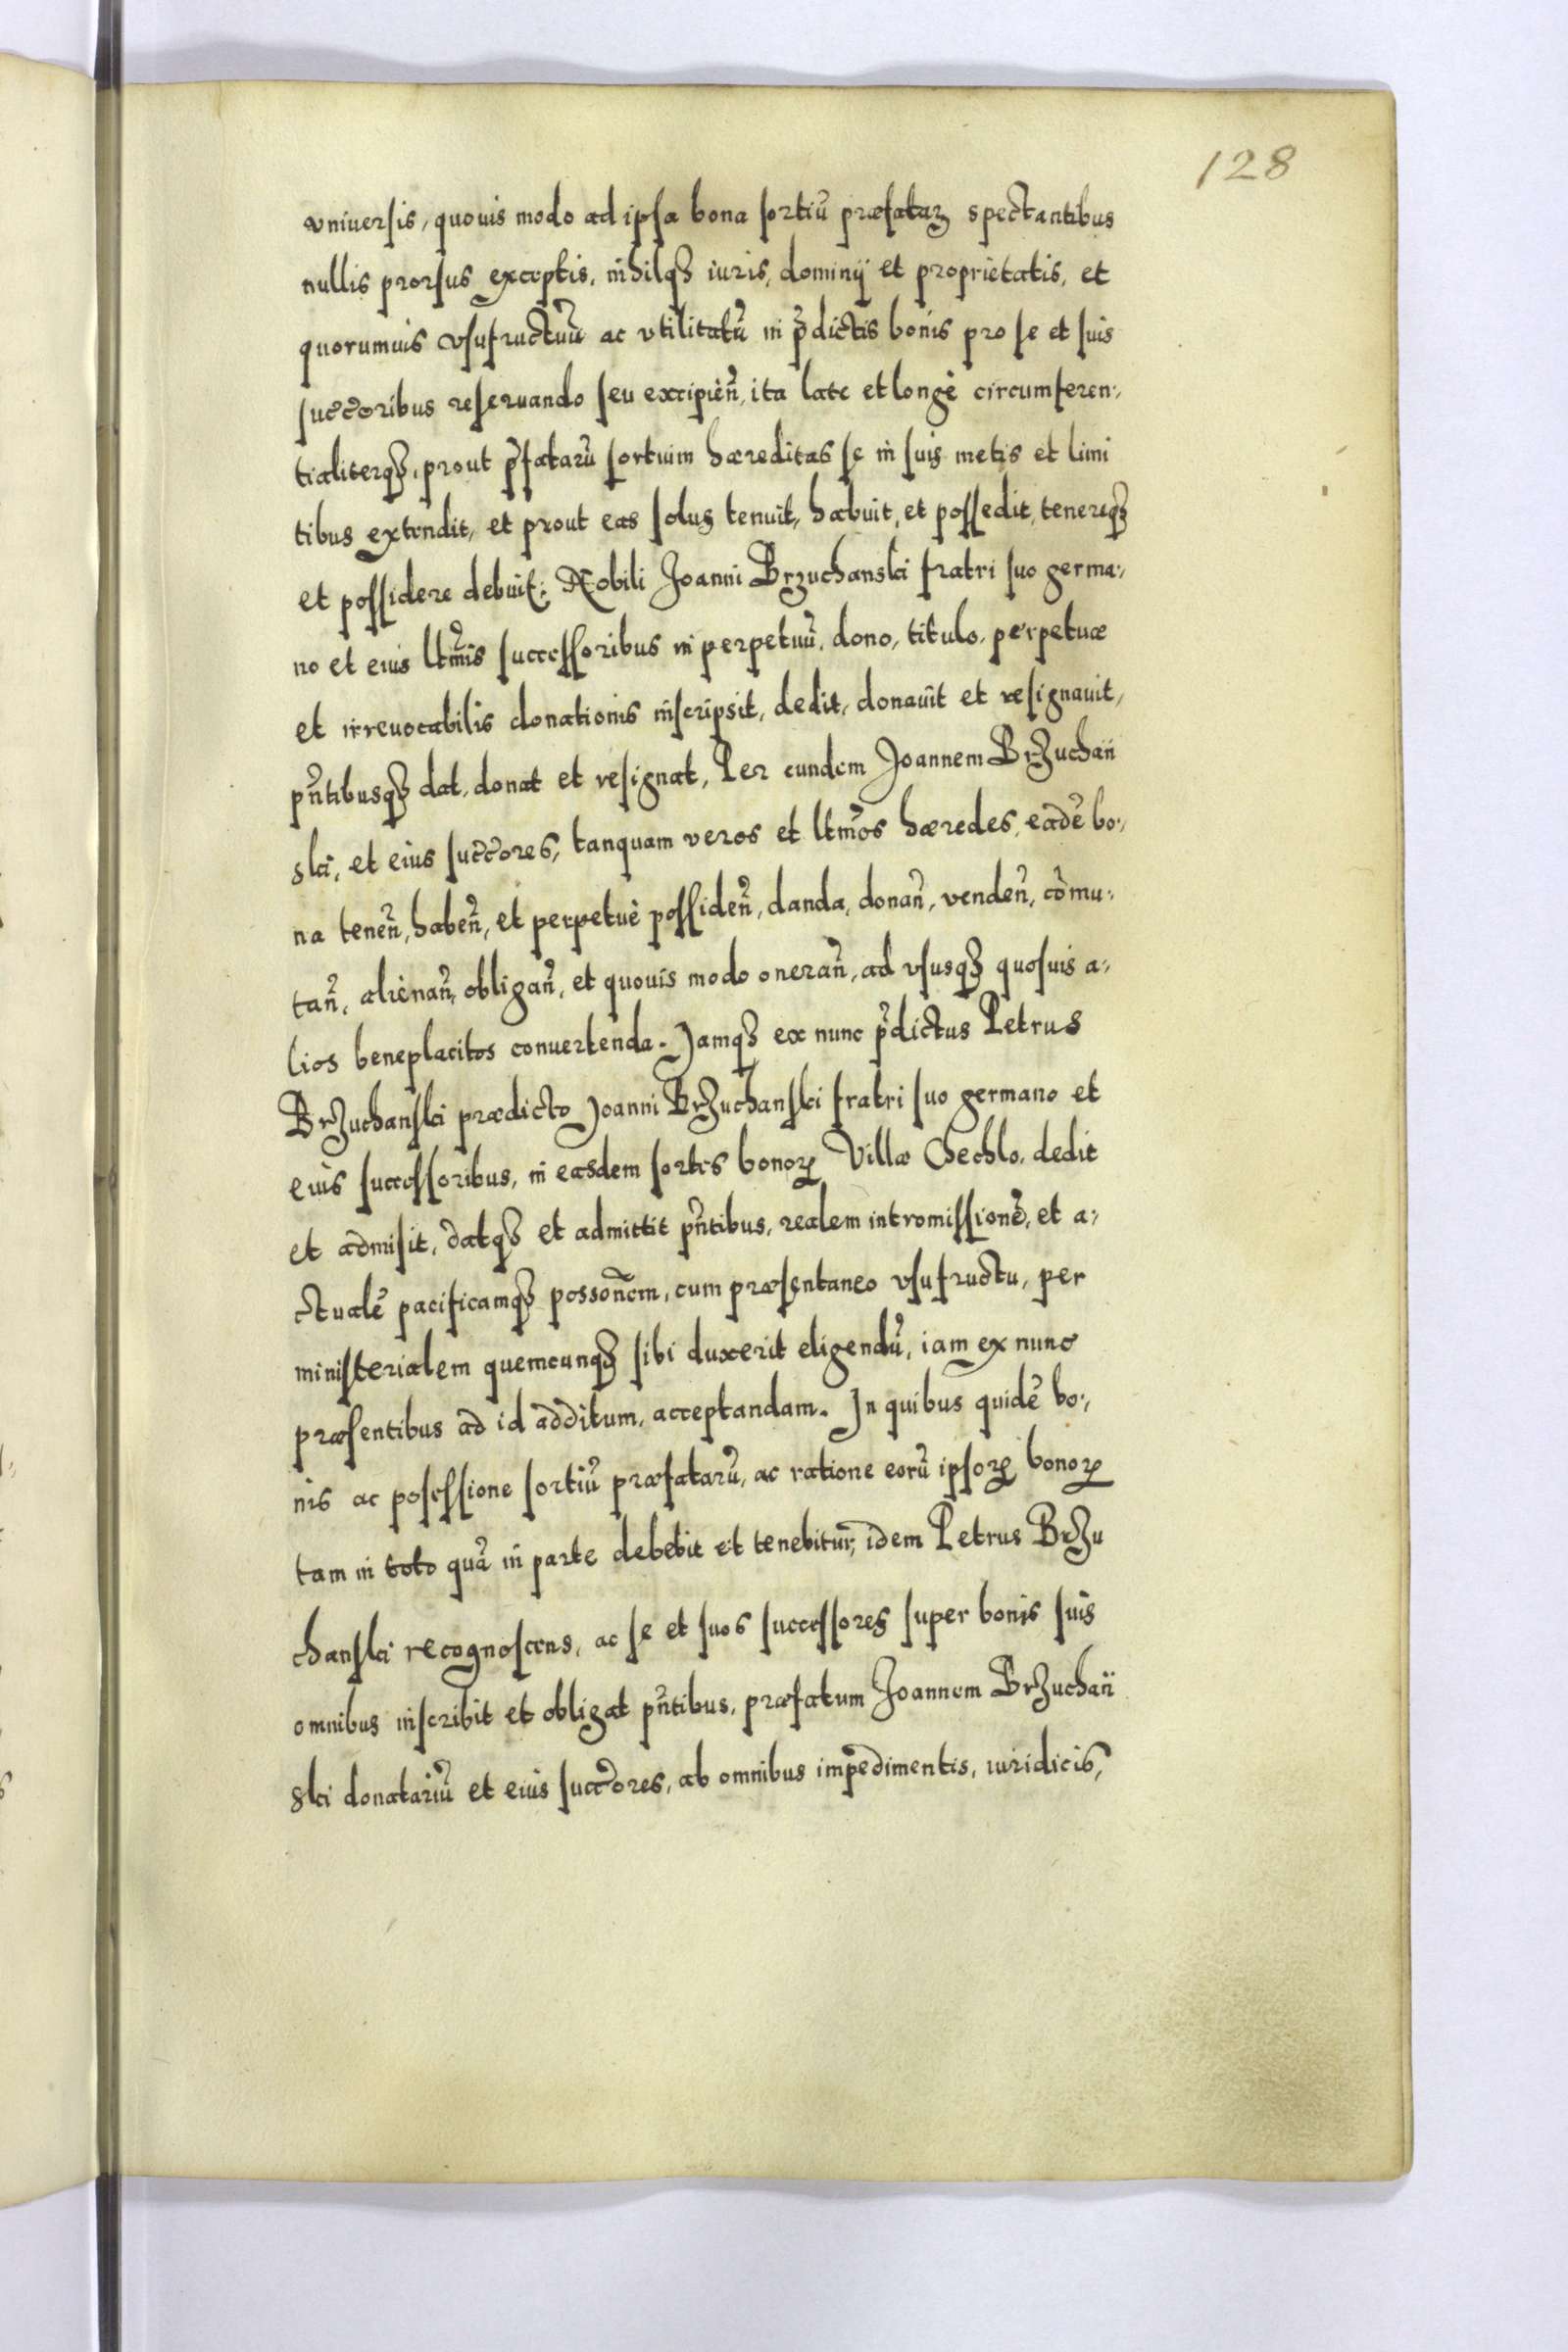 128
vniuersis, quouis modo ad ipsa bona sortiũ præfataꝝ spectantibus
nullis prorsus exceptis, nihilqꝫ iuris, dominÿ et proprietatis, et
quorumuis vsufructuũ ac vtilitatũ in p̃dictis bonis pro se et suis
succ̃oribus reseruando seu excipień, ita late et longè circumferen,,
tialiterqꝫ, prout p̃fatarũ sortium hæreditas se in suis metis et limi
tibus extendit, et prout eas solus tenuit, habuit, et possedit, tenereqꝫ
et possidere debuit: Nobili Joanni Brzuchanski fratri suo germa,,
no et eius ltm̃is successoribus in perpetuũ, dono, titulo, perpetuæ
et irreuocabilis donationis inscripsit, dedit, donauit et resignauit,
pñtibusqꝫ dat, donat et resignat, Per eundem Joannem Brzuchań
ski, et eius succ̃ores, tanquam veros et ltm̃os hæredes, eadẽ bo,,
na teneñ, habeñ, et perpetuè possideñ, danda, donañ, vendeñ, cõmu,,
tañ, alienañ, obligañ, et quouis modo onerañ, ad vsusqꝫ quosuis a,,
lios beneplacitos conuertenda. Jamqꝫ ex nunc p̃dictus Petrus
Brzuchanski prædicto Joanni Brzuchanski fratri suo germano et
eius successoribus, in easdem sortes bonoꝝ Villæ Chechlo, dedit
et admisit, datqꝫ et admittit pñtibus, realem intromissionẽ, et a,,
ctualẽ pacificamqꝫ possoñem, cum præsentaneo vsufructu, per
ministerialem quemcunqꝫ sibi duxerit eligendũ, iam ex nunc
præsentibus ad id additum, acceptandam. In quibus quidẽ bo,,
nis ac possessione sortiũ præfatarũ, ac ratione eorũ ipsoꝝ bonoꝝ
tam in toto quã in parte debebit et tenebitur, idem Petrus Brzu
chanski recognoscens, ac se et suos successores super bonis suis
omnibus inscribit et obligat pñtibus, præfatum Joannem Brzuchań
ski donatariũ et eius succ̃ores, ab omnibus impedimentis, iuridicis,